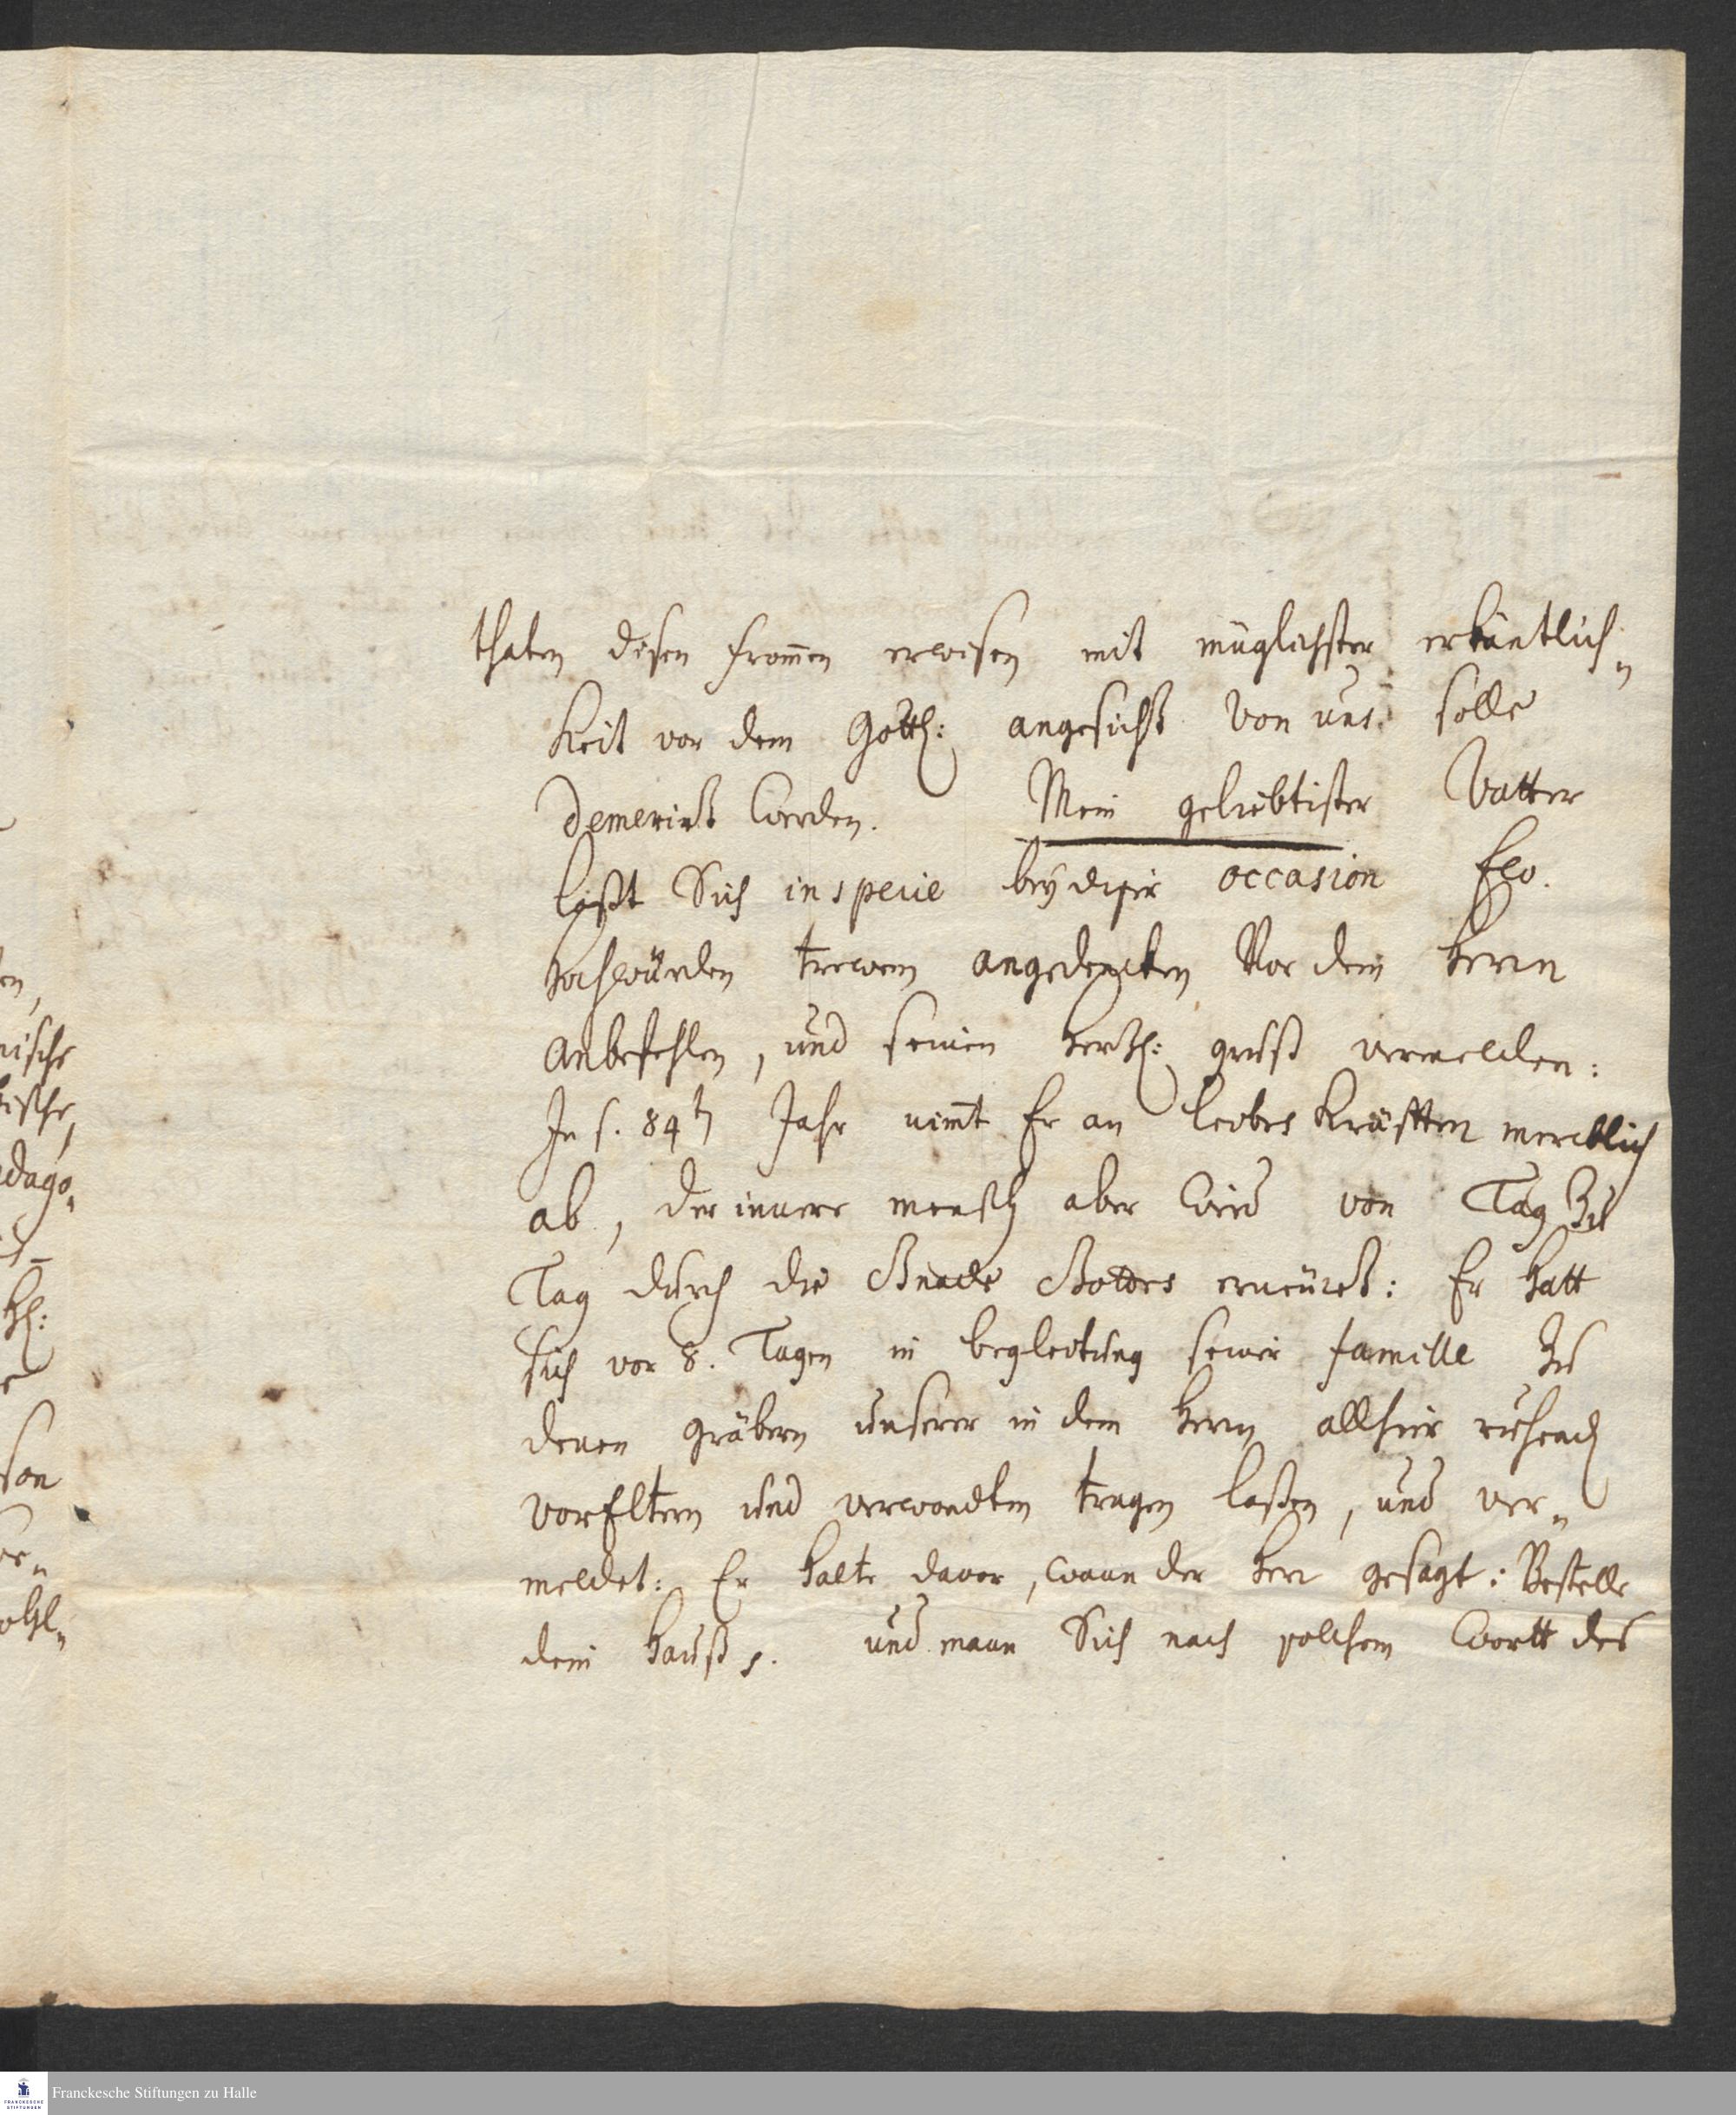 thaten disen frommen erwisen mit müglichster erkäntlich-
keit vor dem Göttl: angesicht von uns solle
demerirt werden. Mein geliebtister Vatter
laßt Sich in specie bey diser occasion Ew.
hochwürden trewem angedencken Vor dem herrn
anbefehlen, und seinen hertzl: gruß vermelden:
In s. 84ten Jahr nimt Er an leibes kräfften mercklich
ab, der innere mensch aber wird von Tag zu
Tag durch die Gnade Gottes erneüret: Er hatt
sich vor 8. Tagen in begleitung seiner famille zu
denen gräbern unserer in dem herrn allhier ruhend
vorEltern und verwandten tragen laßen, und ver-
meldet: Er halte davor, wann der herr gesagt: Bestelle
dein hauß. und mann Sich nach solchem wortt des
en,
nische
dago-
son
Franckesche Stiftungen zu Halle
FRANCKESCHE
STIFTUNGEN